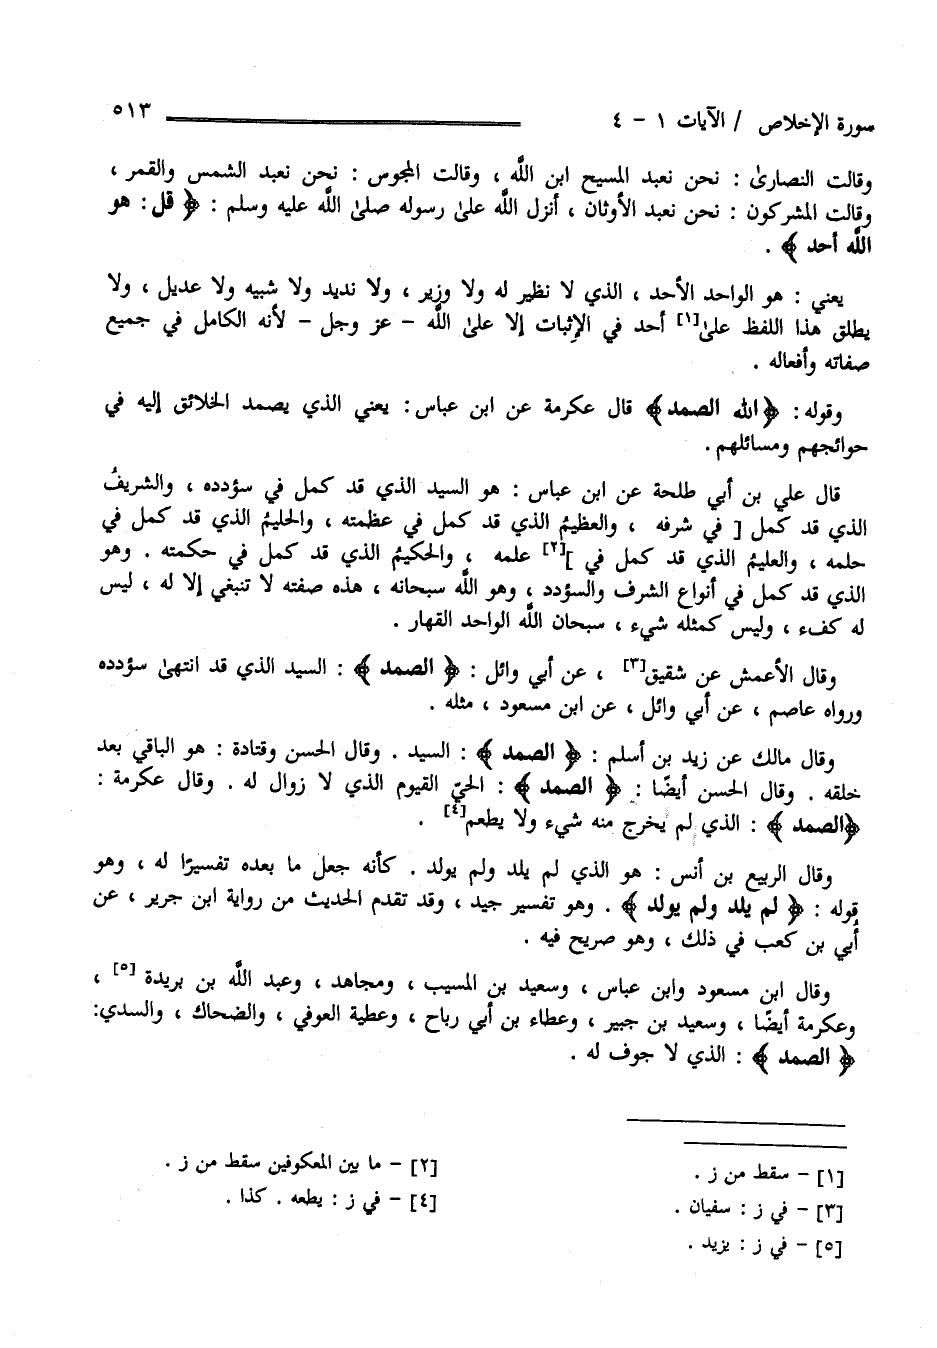 سورة الإخلاص / الآيات ١ - ٤ ٥١٣
وقالت النصارىٰ : نحن نعبد المسيح ابن اللَّه ، وقالت المجوس : نحن نعبد الشمس والقمر ،
وقالت المشركون : نحن نعبد الأوثان ، أنزل اللَّه علىٰ رسوله صلىٰ اللَّه عليه وسلم : ﴿ قل : هو
اللَّه أحد ﴾ .
يعني : هو الواحد الأحد ، الذي لا نظير له ولا وزير ، ولا نديد ولا شبيه ولا عديل ، ولا
يطلق هذا اللفظ علىٰ[١] أحد في الإثبات إلا علىٰ اللَّه - عز وجل - لأنه الكامل في جميع
صفاته وأفعاله .
وقوله : ﴿الله الصمد﴾ قال عكرمة عن ابن عباس : يعني الذي يصمد الخلائق إليه في
حوائجهم ومسائلهم .
قال علي بن أبي طلحة عن ابن عباس : هو السيد الذي قد كمل في سؤدده ، والشريفُ
الذي قد كمل [ في شرفه ، والعظيمُ الذي قد كمل في عظمته ، والحليمُ الذي قد كمل في
حلمه ، والعليمُ الذي قد كمل في ][٢] علمه ، والحكيمُ الذي قد كمل في حكمته . وهو
الذي قد كمل في أنواع الشرف والسؤدد ، وهو اللَّه سبحانه ، هذه صفته لا تنبغي إلا له ، ليس
له كفء ، وليس كمثله شيء ، سبحان اللَّه الواحد القهار .
وقال الأعمش عن شقيق[٣] ، عن أبي وائل : ﴿ الصمد ﴾ : السيد الذي قد انتهىٰ سؤدده
ورواه عاصم ، عن أبي وائل ، عن ابن مسعود ، مثله .
وقال مالك عن زيد بن أسلم : ﴿ الصمد ﴾ : السيد . وقال الحسن وقتادة : هو الباقي بعد
خلقه . وقال الحسن أيضًا : ﴿ الصمد ﴾ : الحيّ القيوم الذي لا زوال له . وقال عكرمة :
﴿الصمد ﴾ : الذي لم يخرج منه شيء ولا يطعم[٤] .
وقال الربيع بن أنس : هو الذي لم يلد ولم يولد . كأنه جعل ما بعده تفسيرًا له ، وهو
قوله : ﴿ لم يلد ولم يولد ﴾ . وهو تفسير جيد ، وقد تقدم الحديث من رواية ابن جرير ، عن
أُبي بن كعب في ذلك ، وهو صريح فيه .
وقال ابن مسعود وابن عباس ، وسعيد بن المسيب ، ومجاهد ، وعبد اللَّه بن بريدة [٥] ،
وعكرمة أيضًا ، وسعيد بن جبير ، وعطاء بن أبي رباح ، وعطية العوفي ، والضحاك ، والسدي:
﴿ الصمد ﴾ : الذي لا جوف له .
[١] - سقط من ز . [٢] - ما بين المعكوفين سقط من ز .
[٣] - في ز : سفيان . [٤] - في ز : يطعه . كذا .
[٥] - في ز : يزيد .